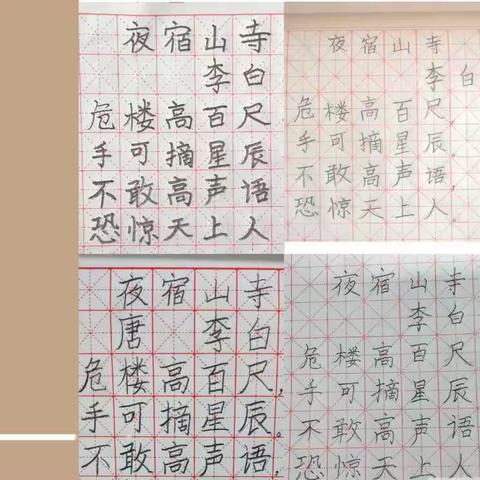 夜宿山寺
李白
危楼高百尺
手可摘星辰
不敢高声语
恐惊天上人
夜宿山寺
李白
危楼高百尺，
手可摘星辰。
不敢高声语，
恐惊天上人
夜宿山寺
唐 李白
危楼高百尺，
手可摘星辰。
不敢高声语，
夜宿山寺
李白
危楼高百尺
手可摘星辰
不敢高声语
恐惊天上人